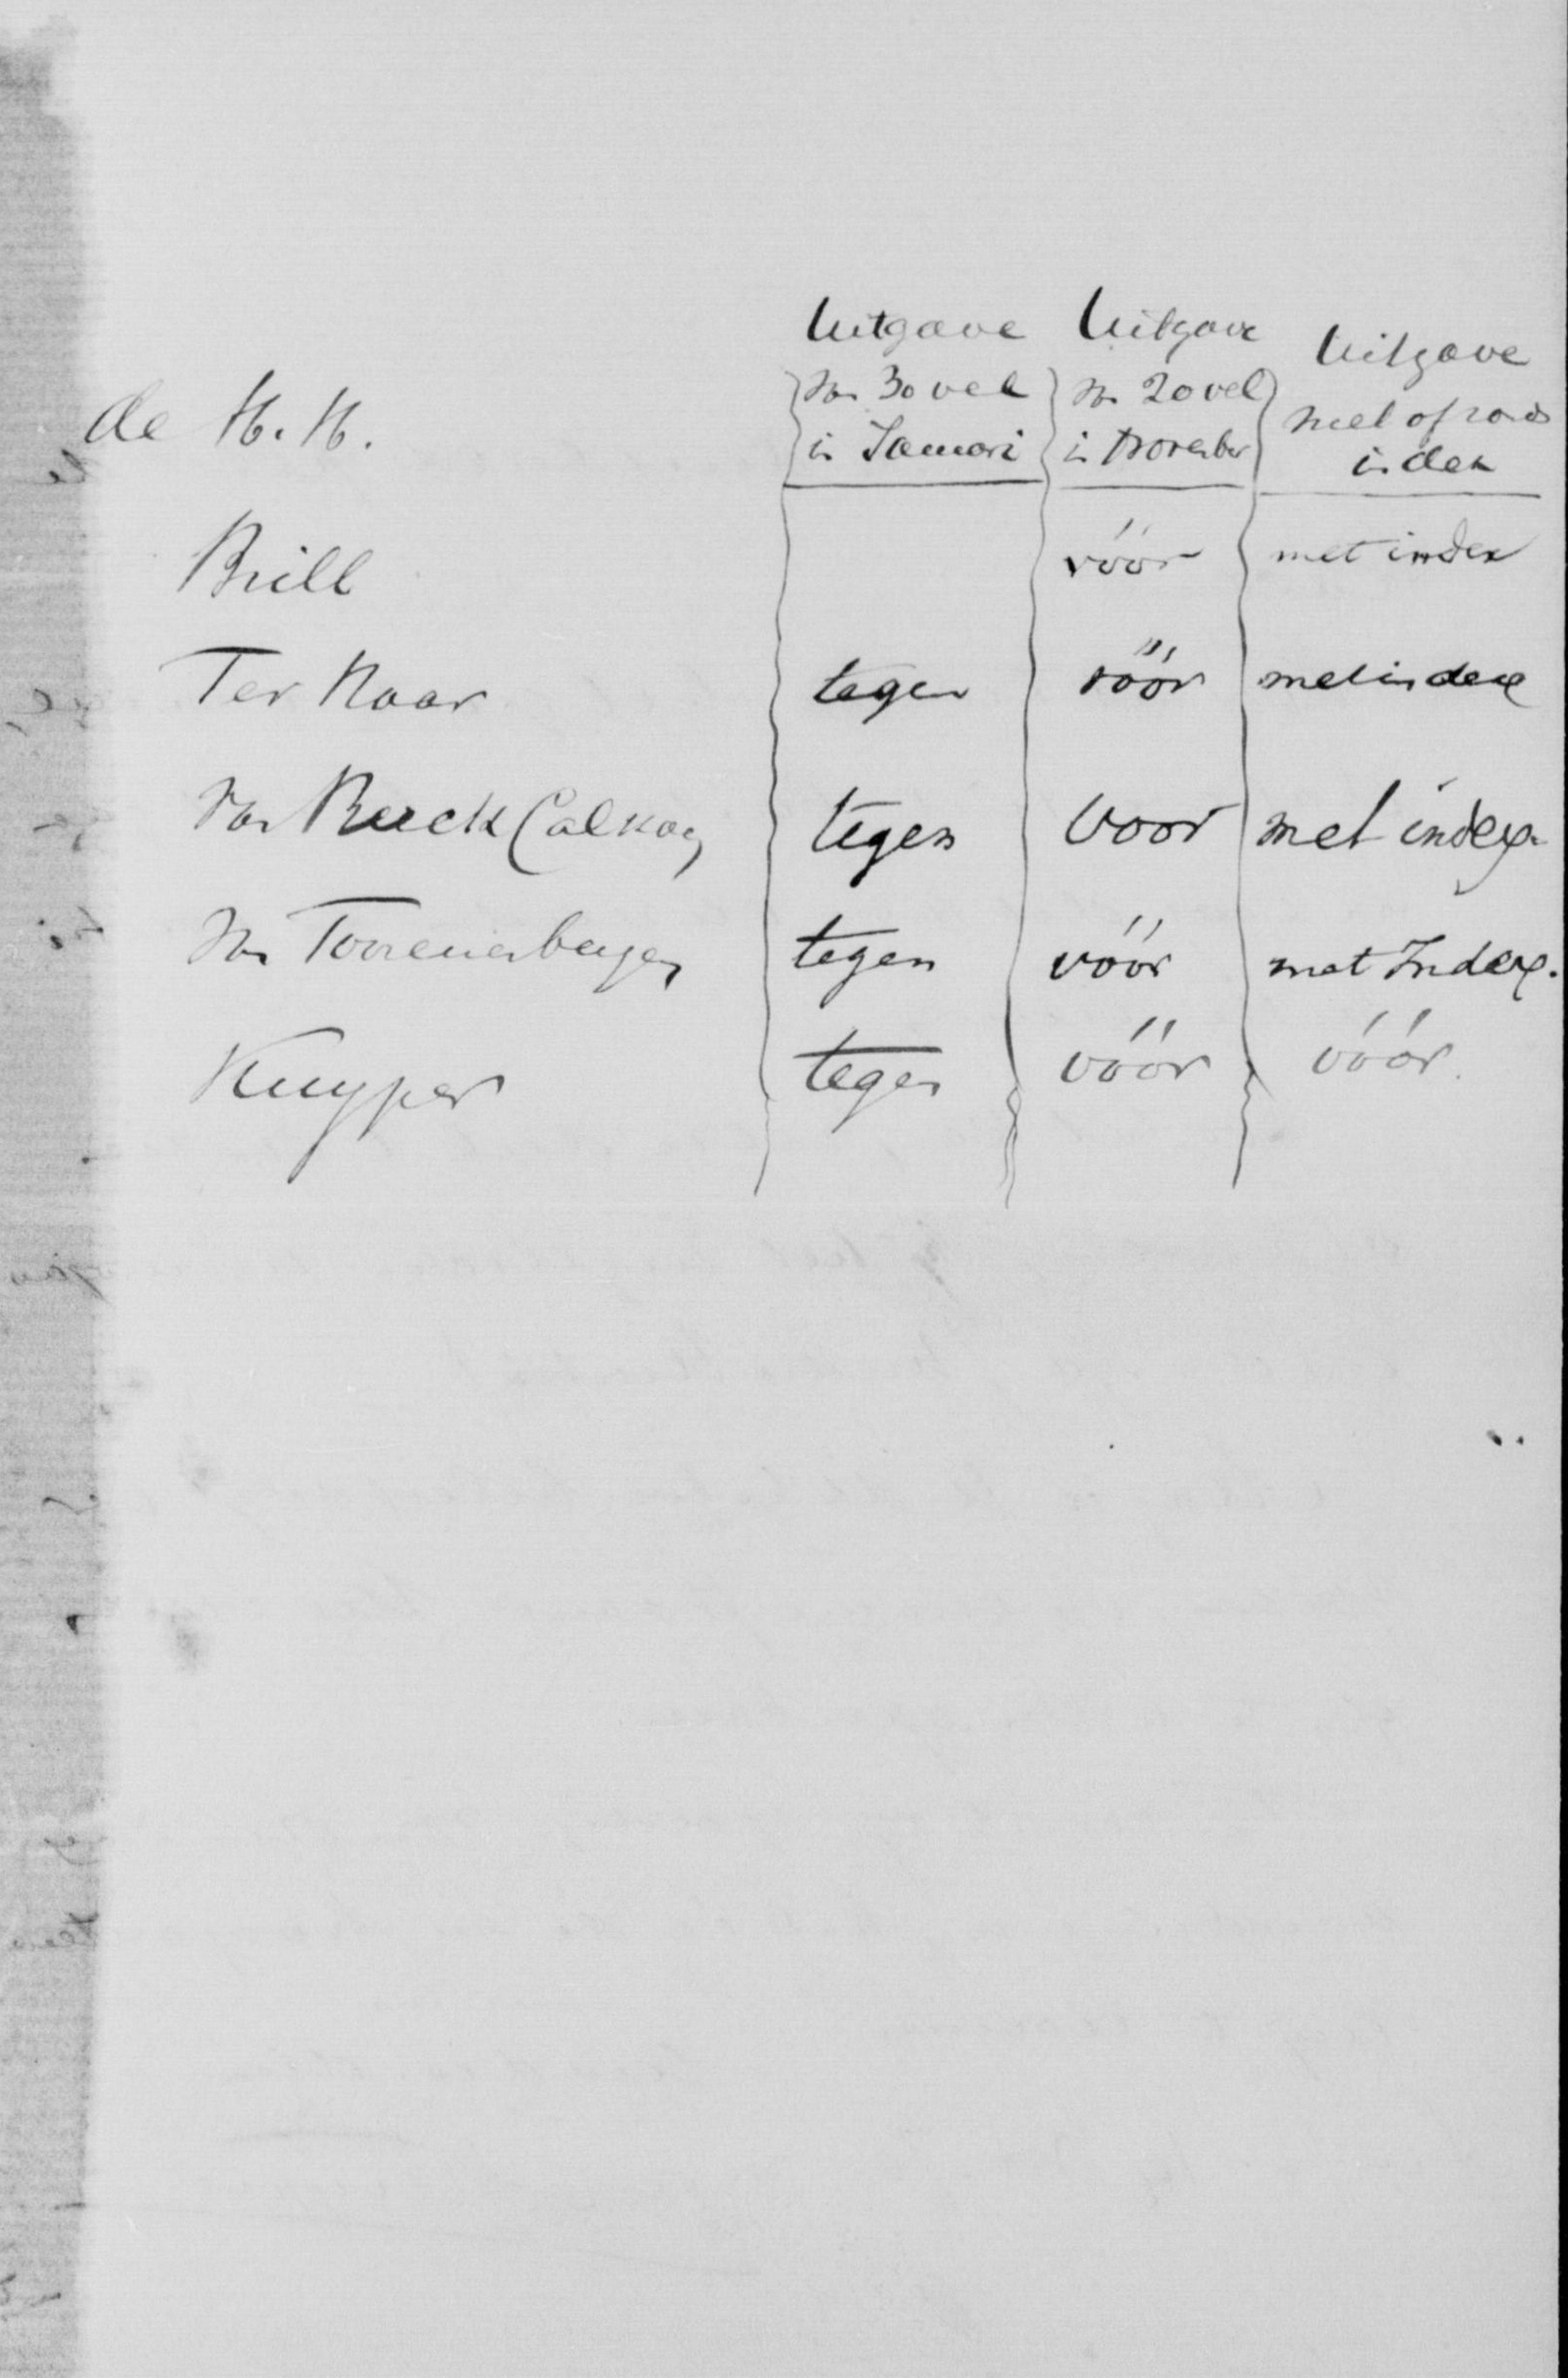 Uitgave Uitgave Uitgave
de H. H. van 30 vel van 20 vel met of zonder
in Januari in November index
Brill vóór met index
Ter Haar tegen vóór met index
van Beeck Calkoen tegen voor met index
van Toorenenbergen tegen vóór met Index.
Kuyper tegen vóór vóór.